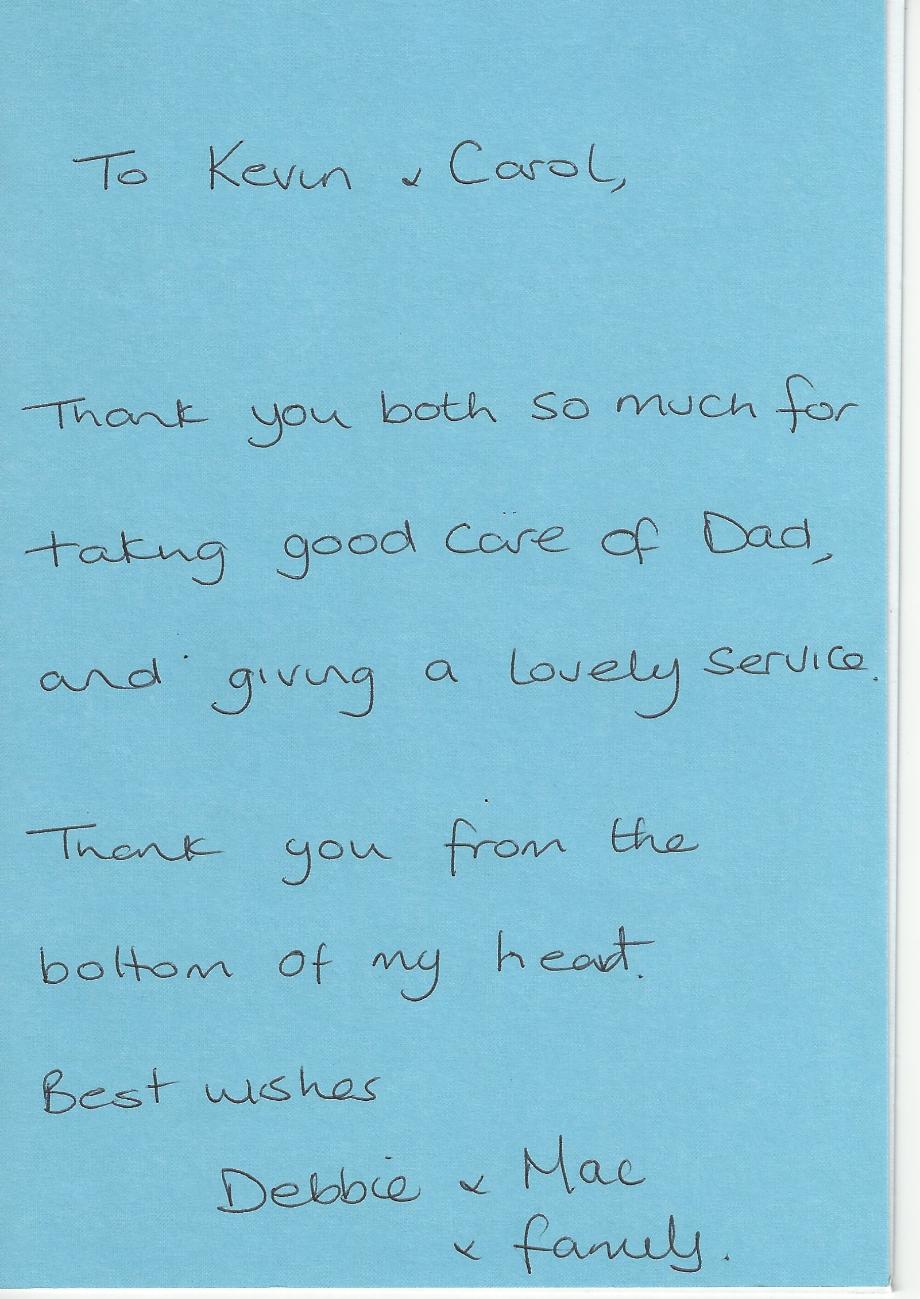 To Kevin & Carol,
Thank you both so much for
taking good care of Dad,
and giving a lovely service.
Thank you from the
bottom of my heart.
Best wishes
Debbie & Mac
& family.